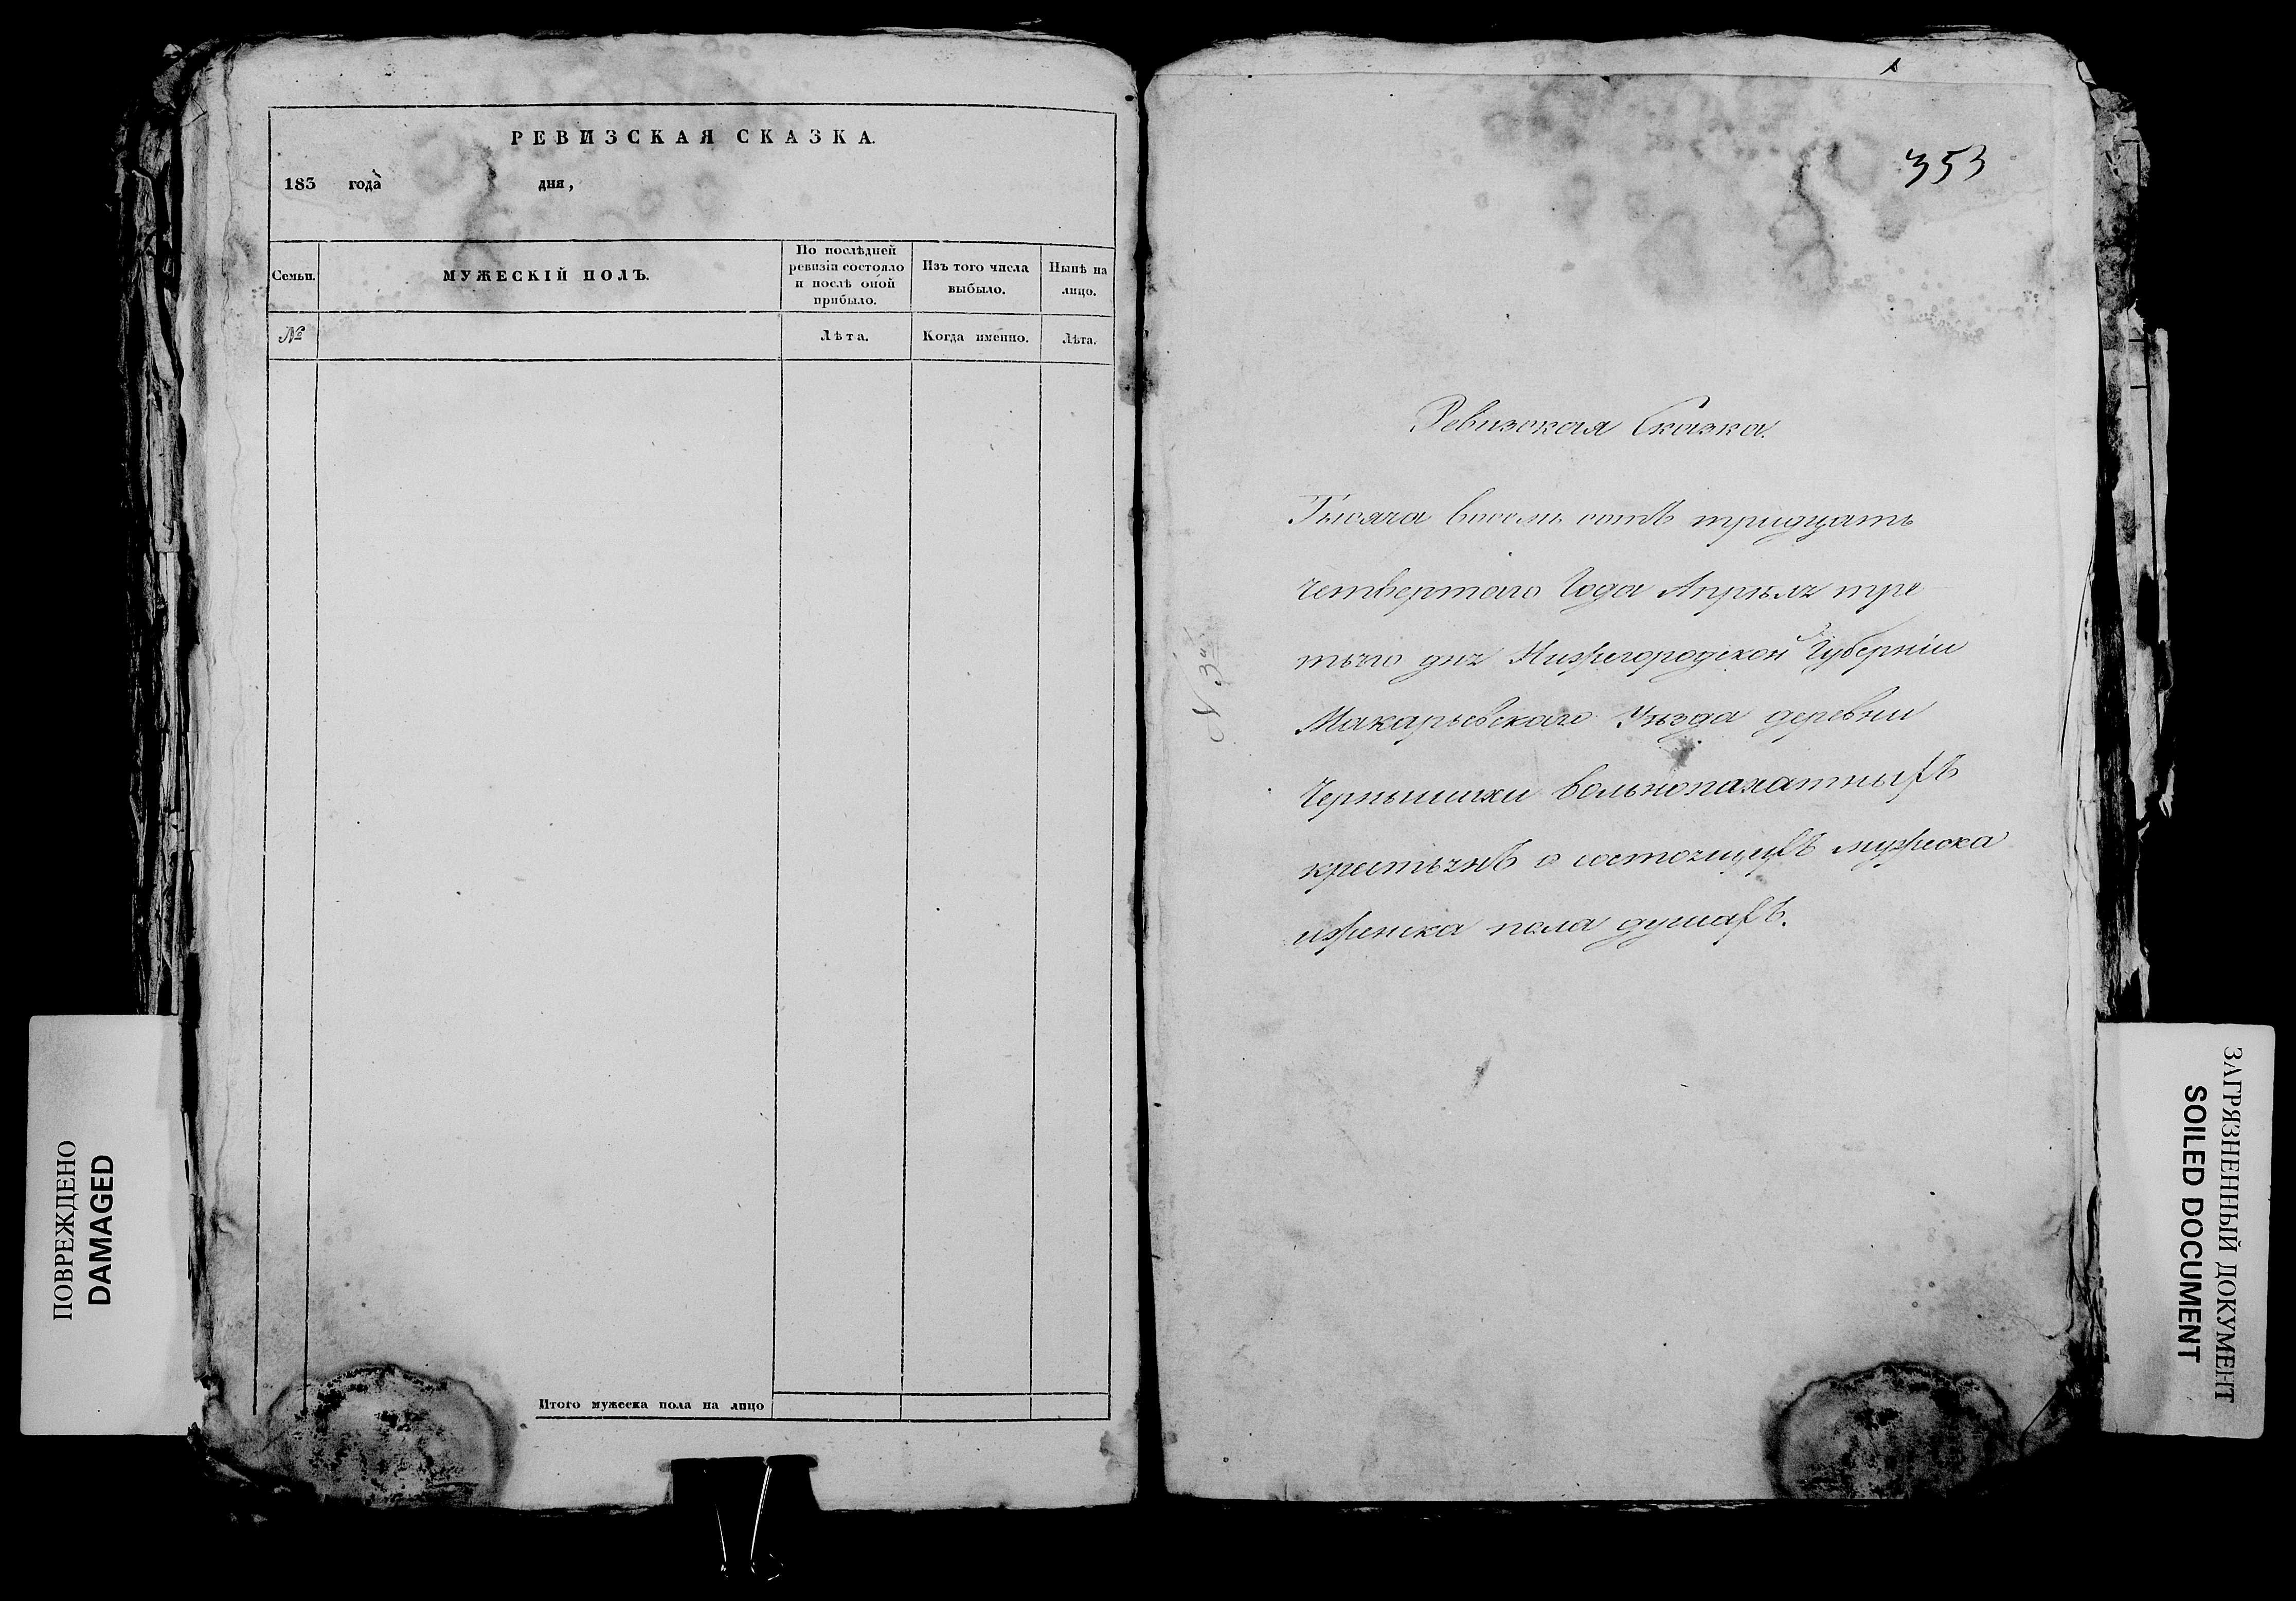 РЕВИЗСКАЯ СКАЗКА.
183 года дня,
Семьи.
МУЖЕСКІЙ ПОЛЪ.
По послѣдней
ревизіи состояло
и послѣ оной
прибыло.
Изъ того числа
выбыло.
Нынѣ на
лицо.
№
Лѣта.
Когда именно.
Лѣта.
Итого мужеска пола на лицо
353
Ревизская Сказка.
Тысяча восемь сотъ тридцать
четвертаго Года Апрѣля тре
тьяго дня Нижегородской Губерніи
Макарьевскаго Уѣзда деревни
вольнопахатныхъ
крестьянъ о состоящихъ мужеска
и женска пола душахъ.
ПОВРЕЖДЕНО
DAMAGED
ЗАГРЯЗНЕННЫЙ ДОКУМЕНТ
SOILED DOCUMENT